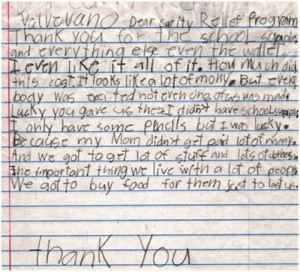 Valvevano Dear carity Relief Program
Thank you for the school somples
and everything else even the wallet
I even like it all of it. How much did
this cost it looks like a lot of mony. But every
body was exited not even one of us was mad.
Lucky you gave us these I didn't have school
I only have some pencils but I was lucky.
Because my Mom didn't get paid lot of mony.
And we got to get lot of stuff and lots of clothes.
The important thing we live with a lot of people
We got to buy food for them just to last us.
thank You